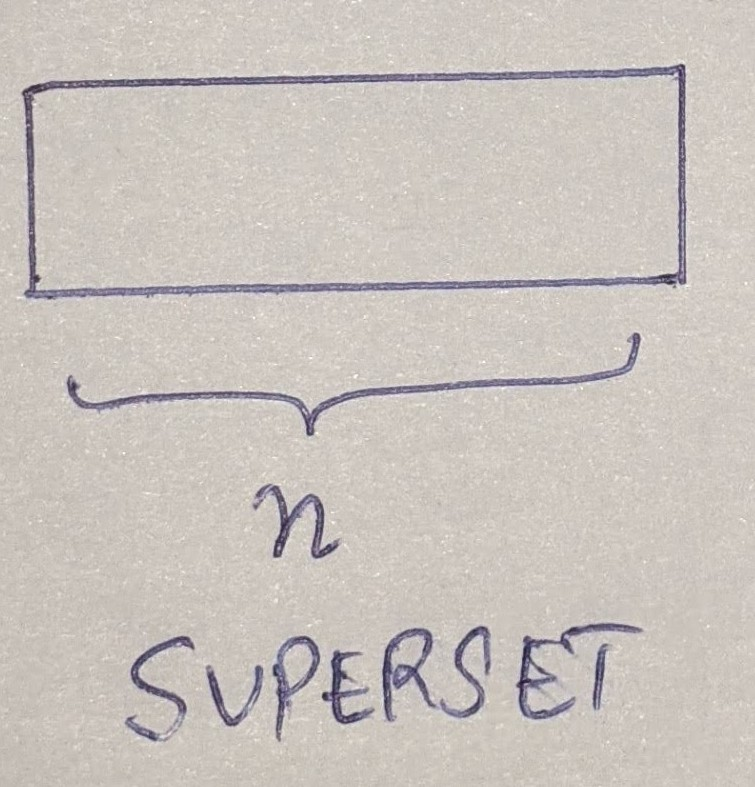 n
SUPERSET